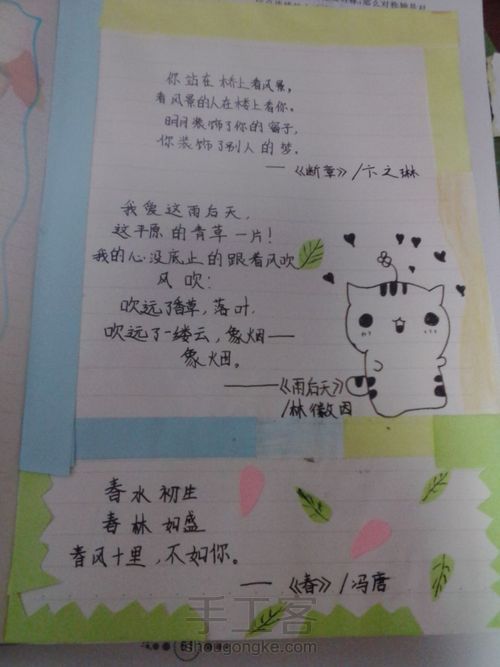 你站在桥上看风景,
看风景的人在楼上看你。
明月装饰了你的窗子,
你装饰了别人的梦。
—《断章》/卞之琳
我爱这雨后天,
这平原的青草一片!
我的心没底止的跟着风吹
风吹:
吹远了香草,落叶,
吹远了一缕云,象烟——
象烟。
——《雨后天》
/林徽因
春水初生
春林初盛
春风十里,不如你。
—《春》/冯唐
51
手工客
shougongke.com